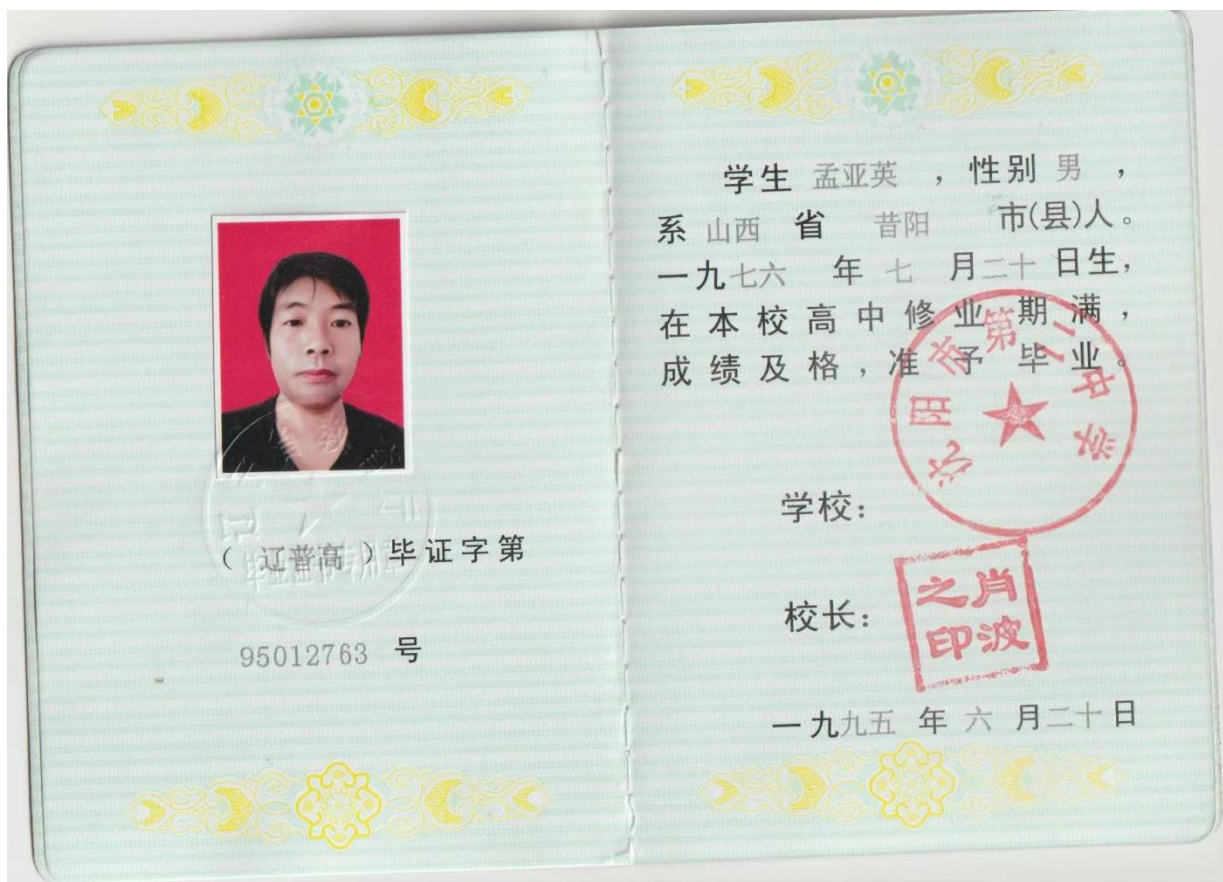 （ 辽普高 ）毕证字第
95012763 号
学生 孟亚英 ，性别 男 ，
系 山西 省 昔阳 市(县)人。
一九七六 年 七 月二十 日生，
在本校高中修业期满，
成绩及格，准予毕业。
学校：
沈阳市第二中学
校长：
肖波之印
一九九五 年 六 月二十日